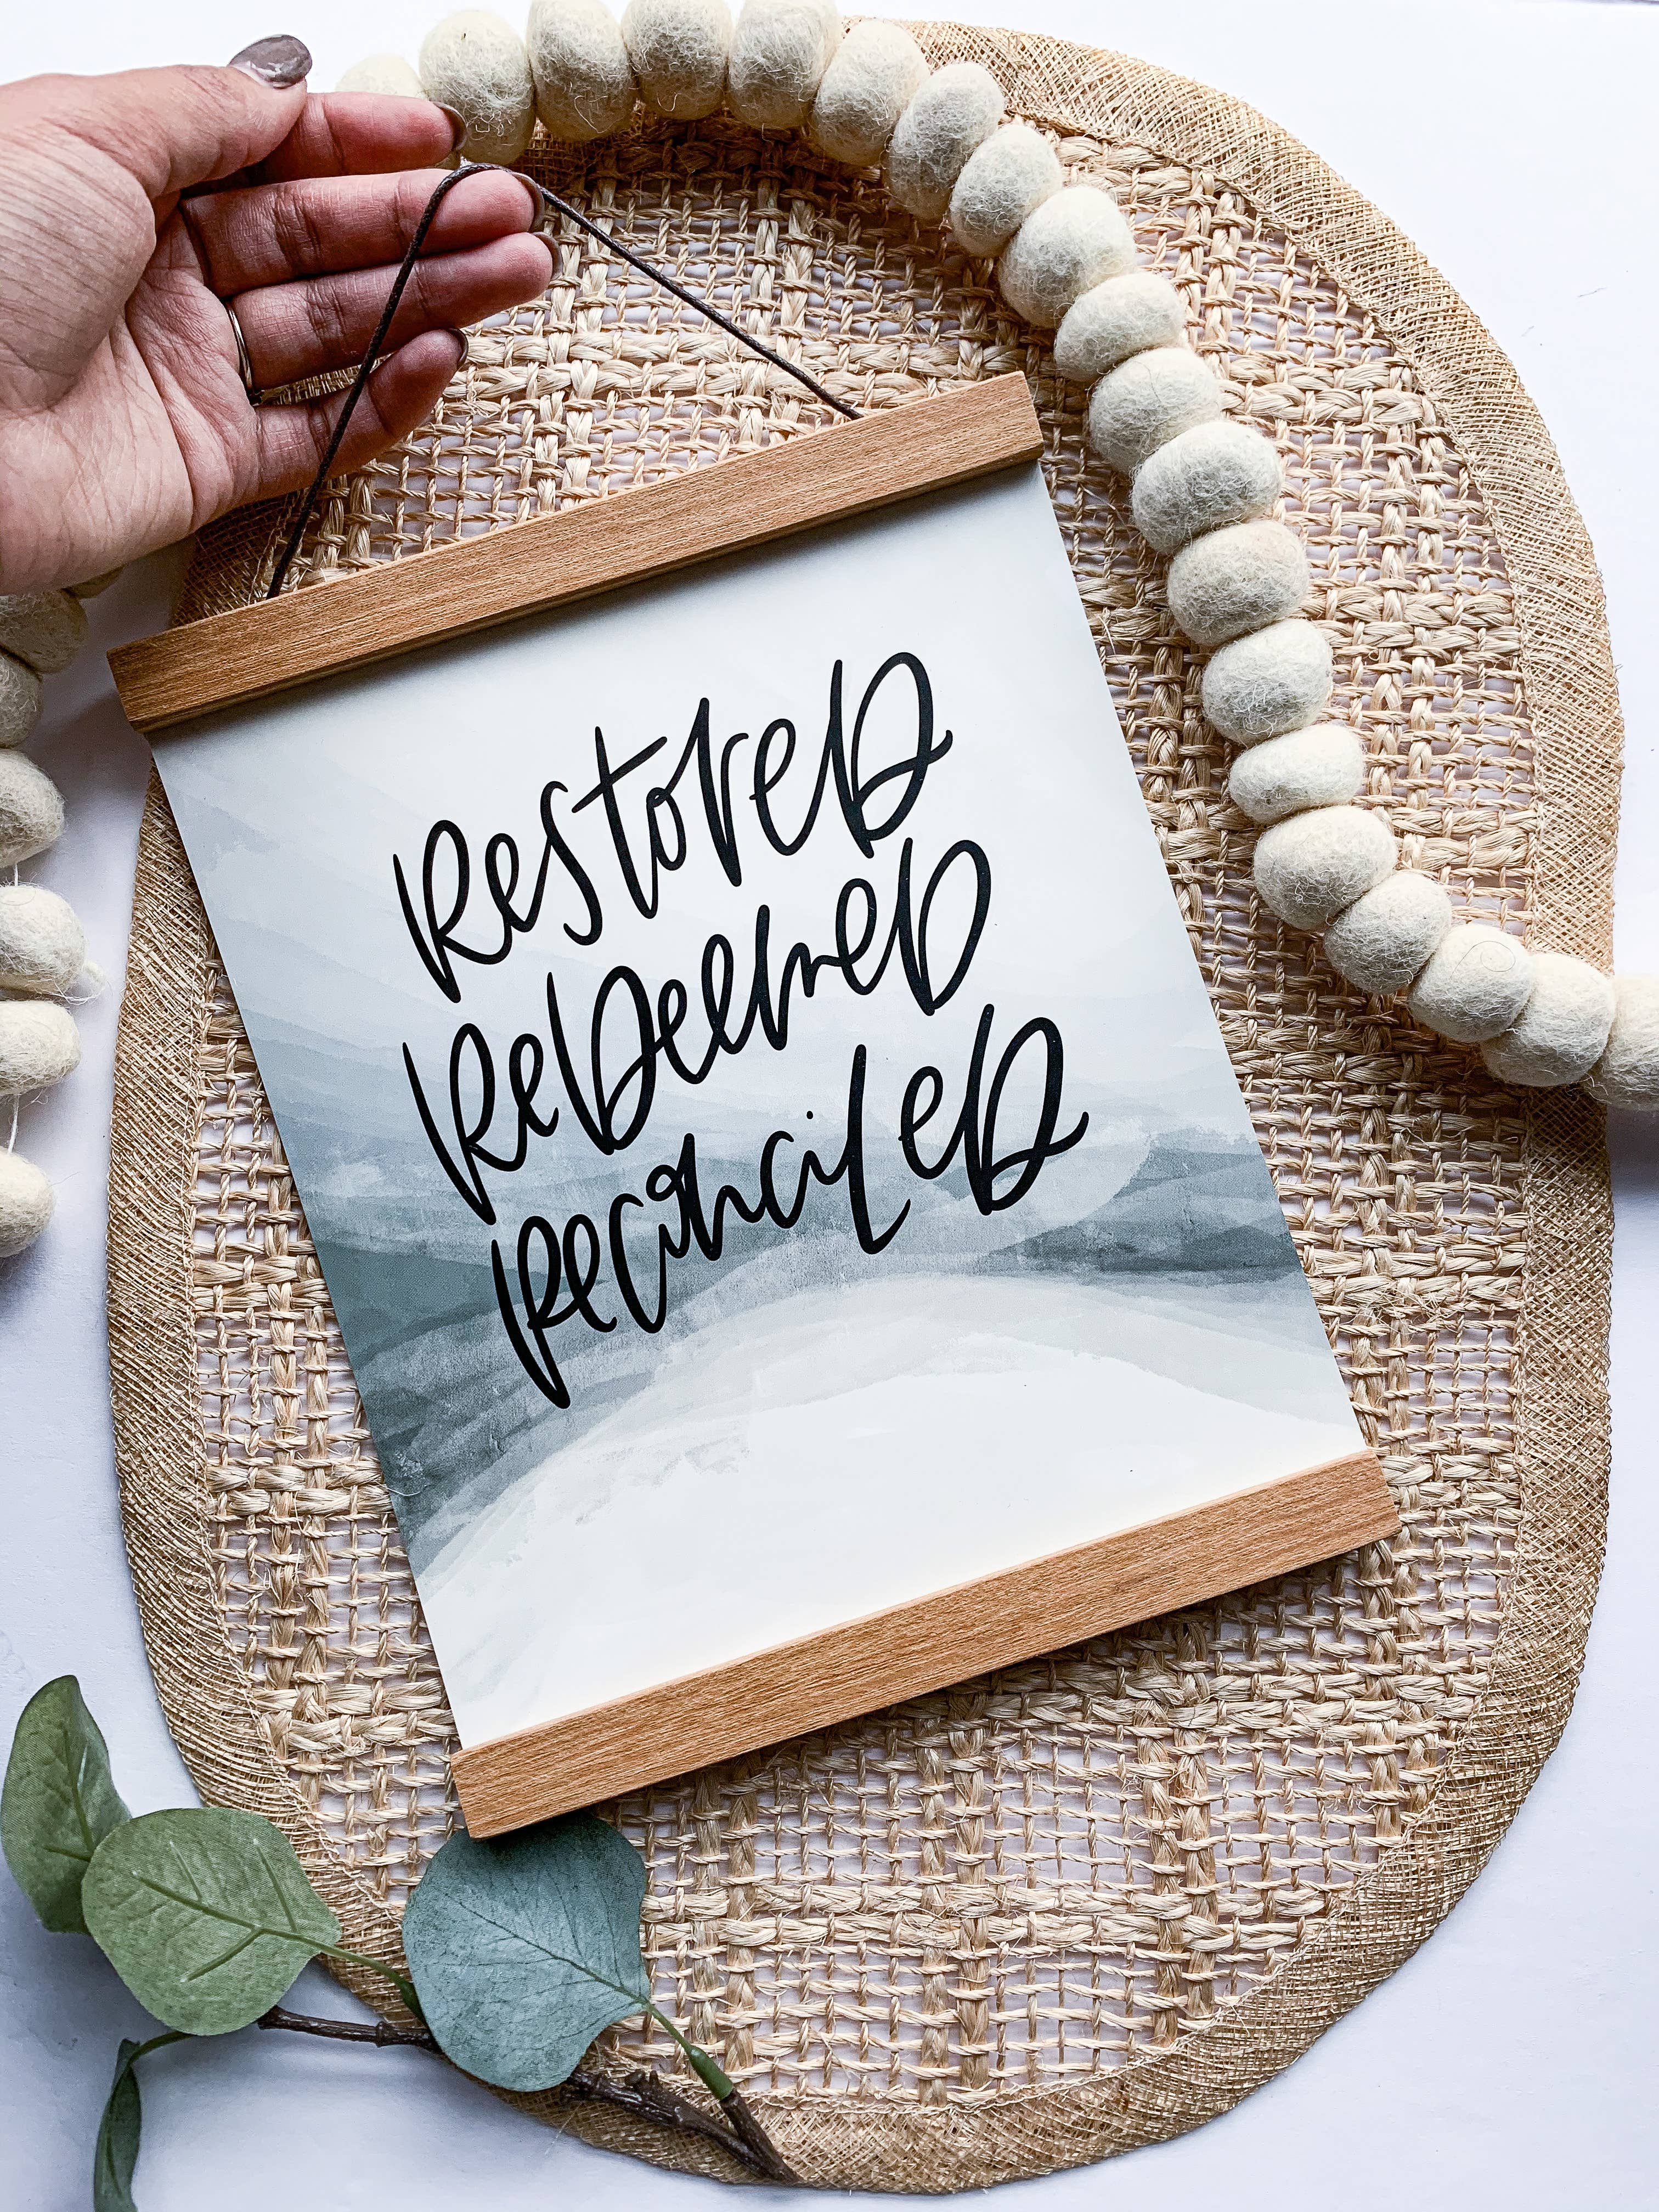 Restored
Redeemed
Reconciled